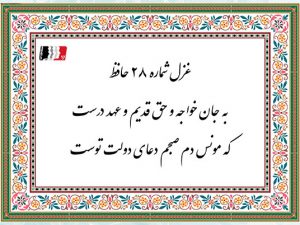 غزل شماره ۲۸ حافظ
به جان خواجه و حق قدیم و عهد درست
که مونس دم صبحم دعای دولت توست